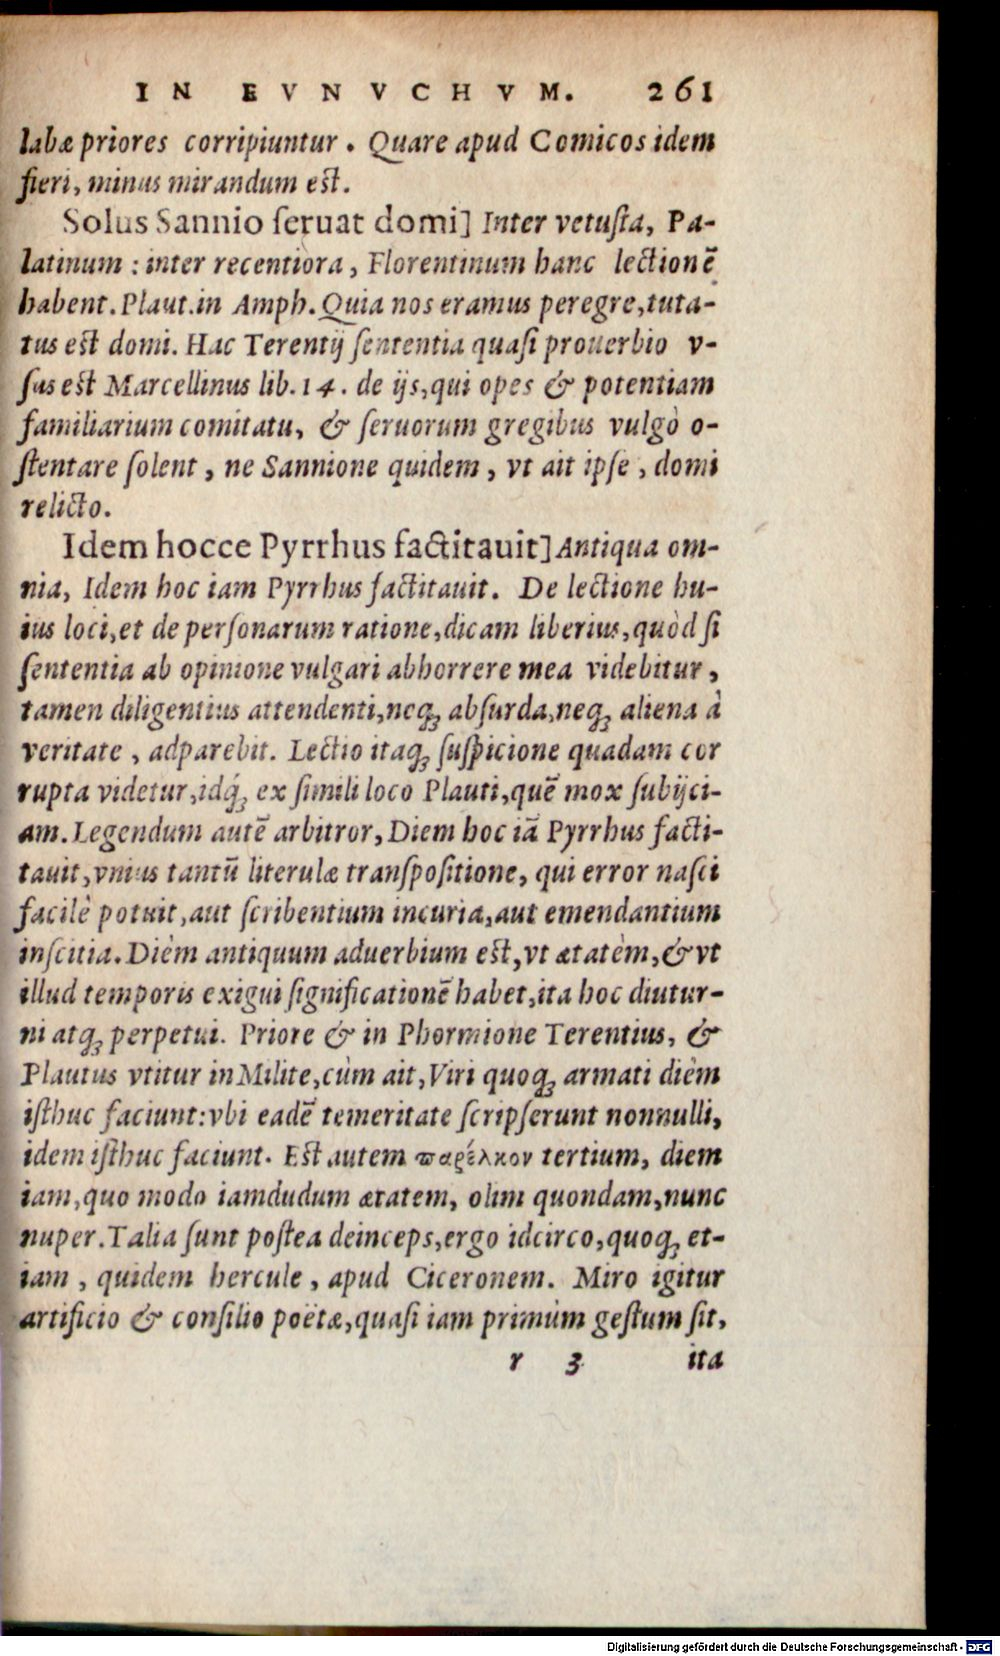 IN EVNVCHVM. 261
labæ priores corripiuntur. Quare apud Comicos idem
fieri, minus mirandum est.
Solus Sannio ſeruat domi] Inter vetuſta, Pa-
latinum: inter recentiora, Florentinum hanc lectionē
habent. Plaut. in Amph. Quia nos eramus peregre, tuta-
tus est domi. Hac Terentij ſententia quaſi prouerbio v-
ſus est Marcellinus lib. 14. de ijs, qui opes & potentiam
familiarium comitatu, & ſeruorum gregibus vulgò o-
ſtentare ſolent, ne Sannione quidem, vt ait ipſe, domi
relicto.
Idem hocce Pyrrhus factitauit] Antiqua om-
nia, Idem hoc iam Pyrrhus factitauit. De lectione hu-
ius loci, et de perſonarum ratione, dicam liberius, quòd ſi
ſententia ab opinione vulgari abhorrere mea videbitur,
tamen diligentius attendenti, neqꝫ abſurda, neqꝫ aliena à
veritate, adparebit. Lectio itaqꝫ ſuſpicione quadam cor
rupta videtur, idq́ꝫ ex ſimili loco Plauti, quē mox ſubijci-
am. Legendum autē arbitror, Diem hoc iā Pyrrhus facti-
tauit, vnius tantū literulæ tranſpoſitione, qui error naſci
facilè potuit, aut ſcribentium incuria, aut emendantium
inſcitia. Dièm antiquum aduerbium est, vt ætatèm, & vt
illud temporis exigui ſignificationē habet, ita hoc diutur-
ni atqꝫ perpetui. Priore & in Phormione Terentius, &
Plautus vtitur in Milite, cùm ait, Viri quoqꝫ armati dièm
iſthuc faciunt: vbi eadē temeritate ſcripſerunt nonnulli,
idem iſthuc faciunt. Est autem παρέλκον tertium, diem
iam, quo modo iamdudum ætatem, olim quondam, nunc
nuper. Talia ſunt poſtea deinceps, ergo idcirco, quoqꝫ et-
iam, quidem hercule, apud Ciceronem. Miro igitur
artificio & conſilio poëtæ, quaſi iam primùm geſtum ſit,
r 3 ita
Digitalisierung gefördert durch die Deutsche Forschungsgemeinschaft - DFG